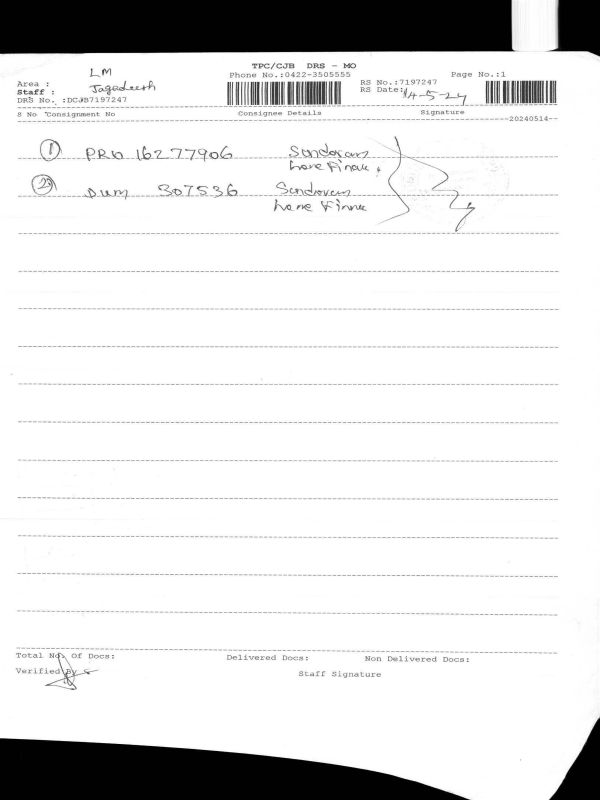 TPC/CJB DRS - MO
LM
Phone No.:0422-3505555
RS No.:7197247
Page No.:1
Area :
Staff : Jagadeesh
RS Date: 14-5-24
DRS No. :DCJB7197247
S No Consignment No
Consignee Details
Signature
--20240514--
1 PRO 16277906 Sundaram
home Finance.
2 Dum 307536 Sundaram
home Finance
Total No. Of Docs:
Delivered Docs:
Non Delivered Docs:
Verified By
Staff Signature